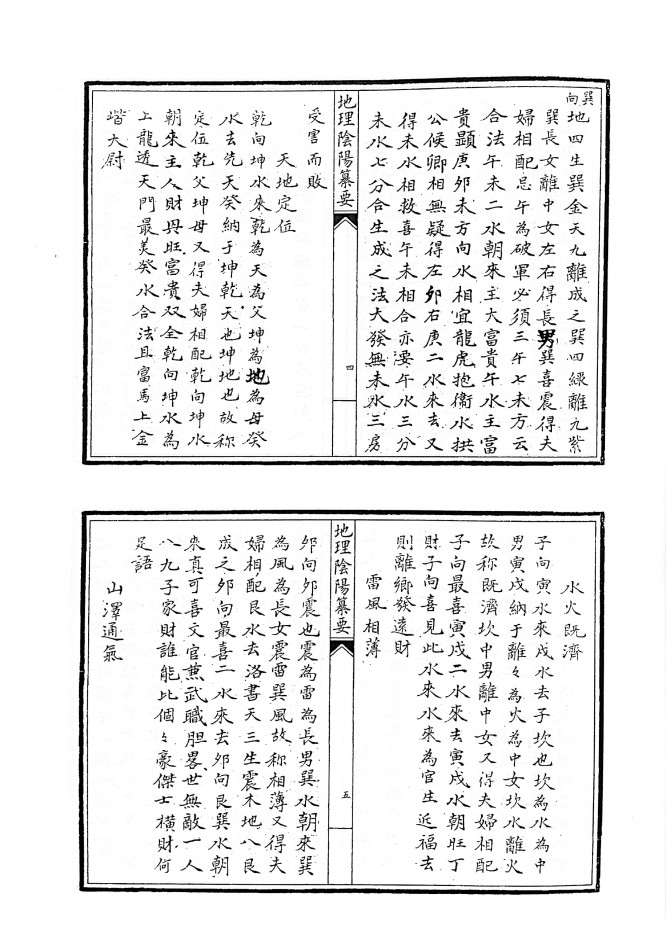 巽向
地四生巽金天九離成之巽四綠離九紫
巽長女離中女左右得長男巽喜震得夫
婦相配忌午為破軍必須三午七未方云
合法午未二水朝來主大富貴午水主富
貴顯庚卯未方向水相宜龍虎抱衞水拱
公候卿相無疑得左卯右庚二水來去又
得未水相救喜午未相合亦要午水三分
未水七分合生成之法大發無未水三房
地理陰陽纂要
四
受害而敗
天地定位
乾向坤水來乾為天為父坤為地為母癸
水去先天癸納于坤乾天也坤地也故称
定位乾父坤母又得夫婦相配乾向坤水
朝來主人財異旺富貴双全乾向坤水為
上龍透天門最美癸水合法且富馬上金
堦大尉
水火既濟
子向寅水來戌水去子坎也坎為水為中
男寅戌納于離々為火為中女坎水離火
故称既濟坎中男離中女又得夫婦相配
子向最喜寅戌二水來去寅戌水朝旺丁
財子向喜見此水來水來為官生近福去
則離鄉發遠財
雷風相薄
地理陰陽纂要
五
卯向卯震也震為雷為長男巽水朝來巽
為風為長女震雷巽風故称相薄又得夫
婦相配艮水去洛書天三生震木地八艮
成之卯向最喜二水來去卯向艮巽水朝
來真可喜文官蕙武職胆畧世無敵一人
八九子家財誰能比個々豪傑士橫財何
足語
山澤通氣